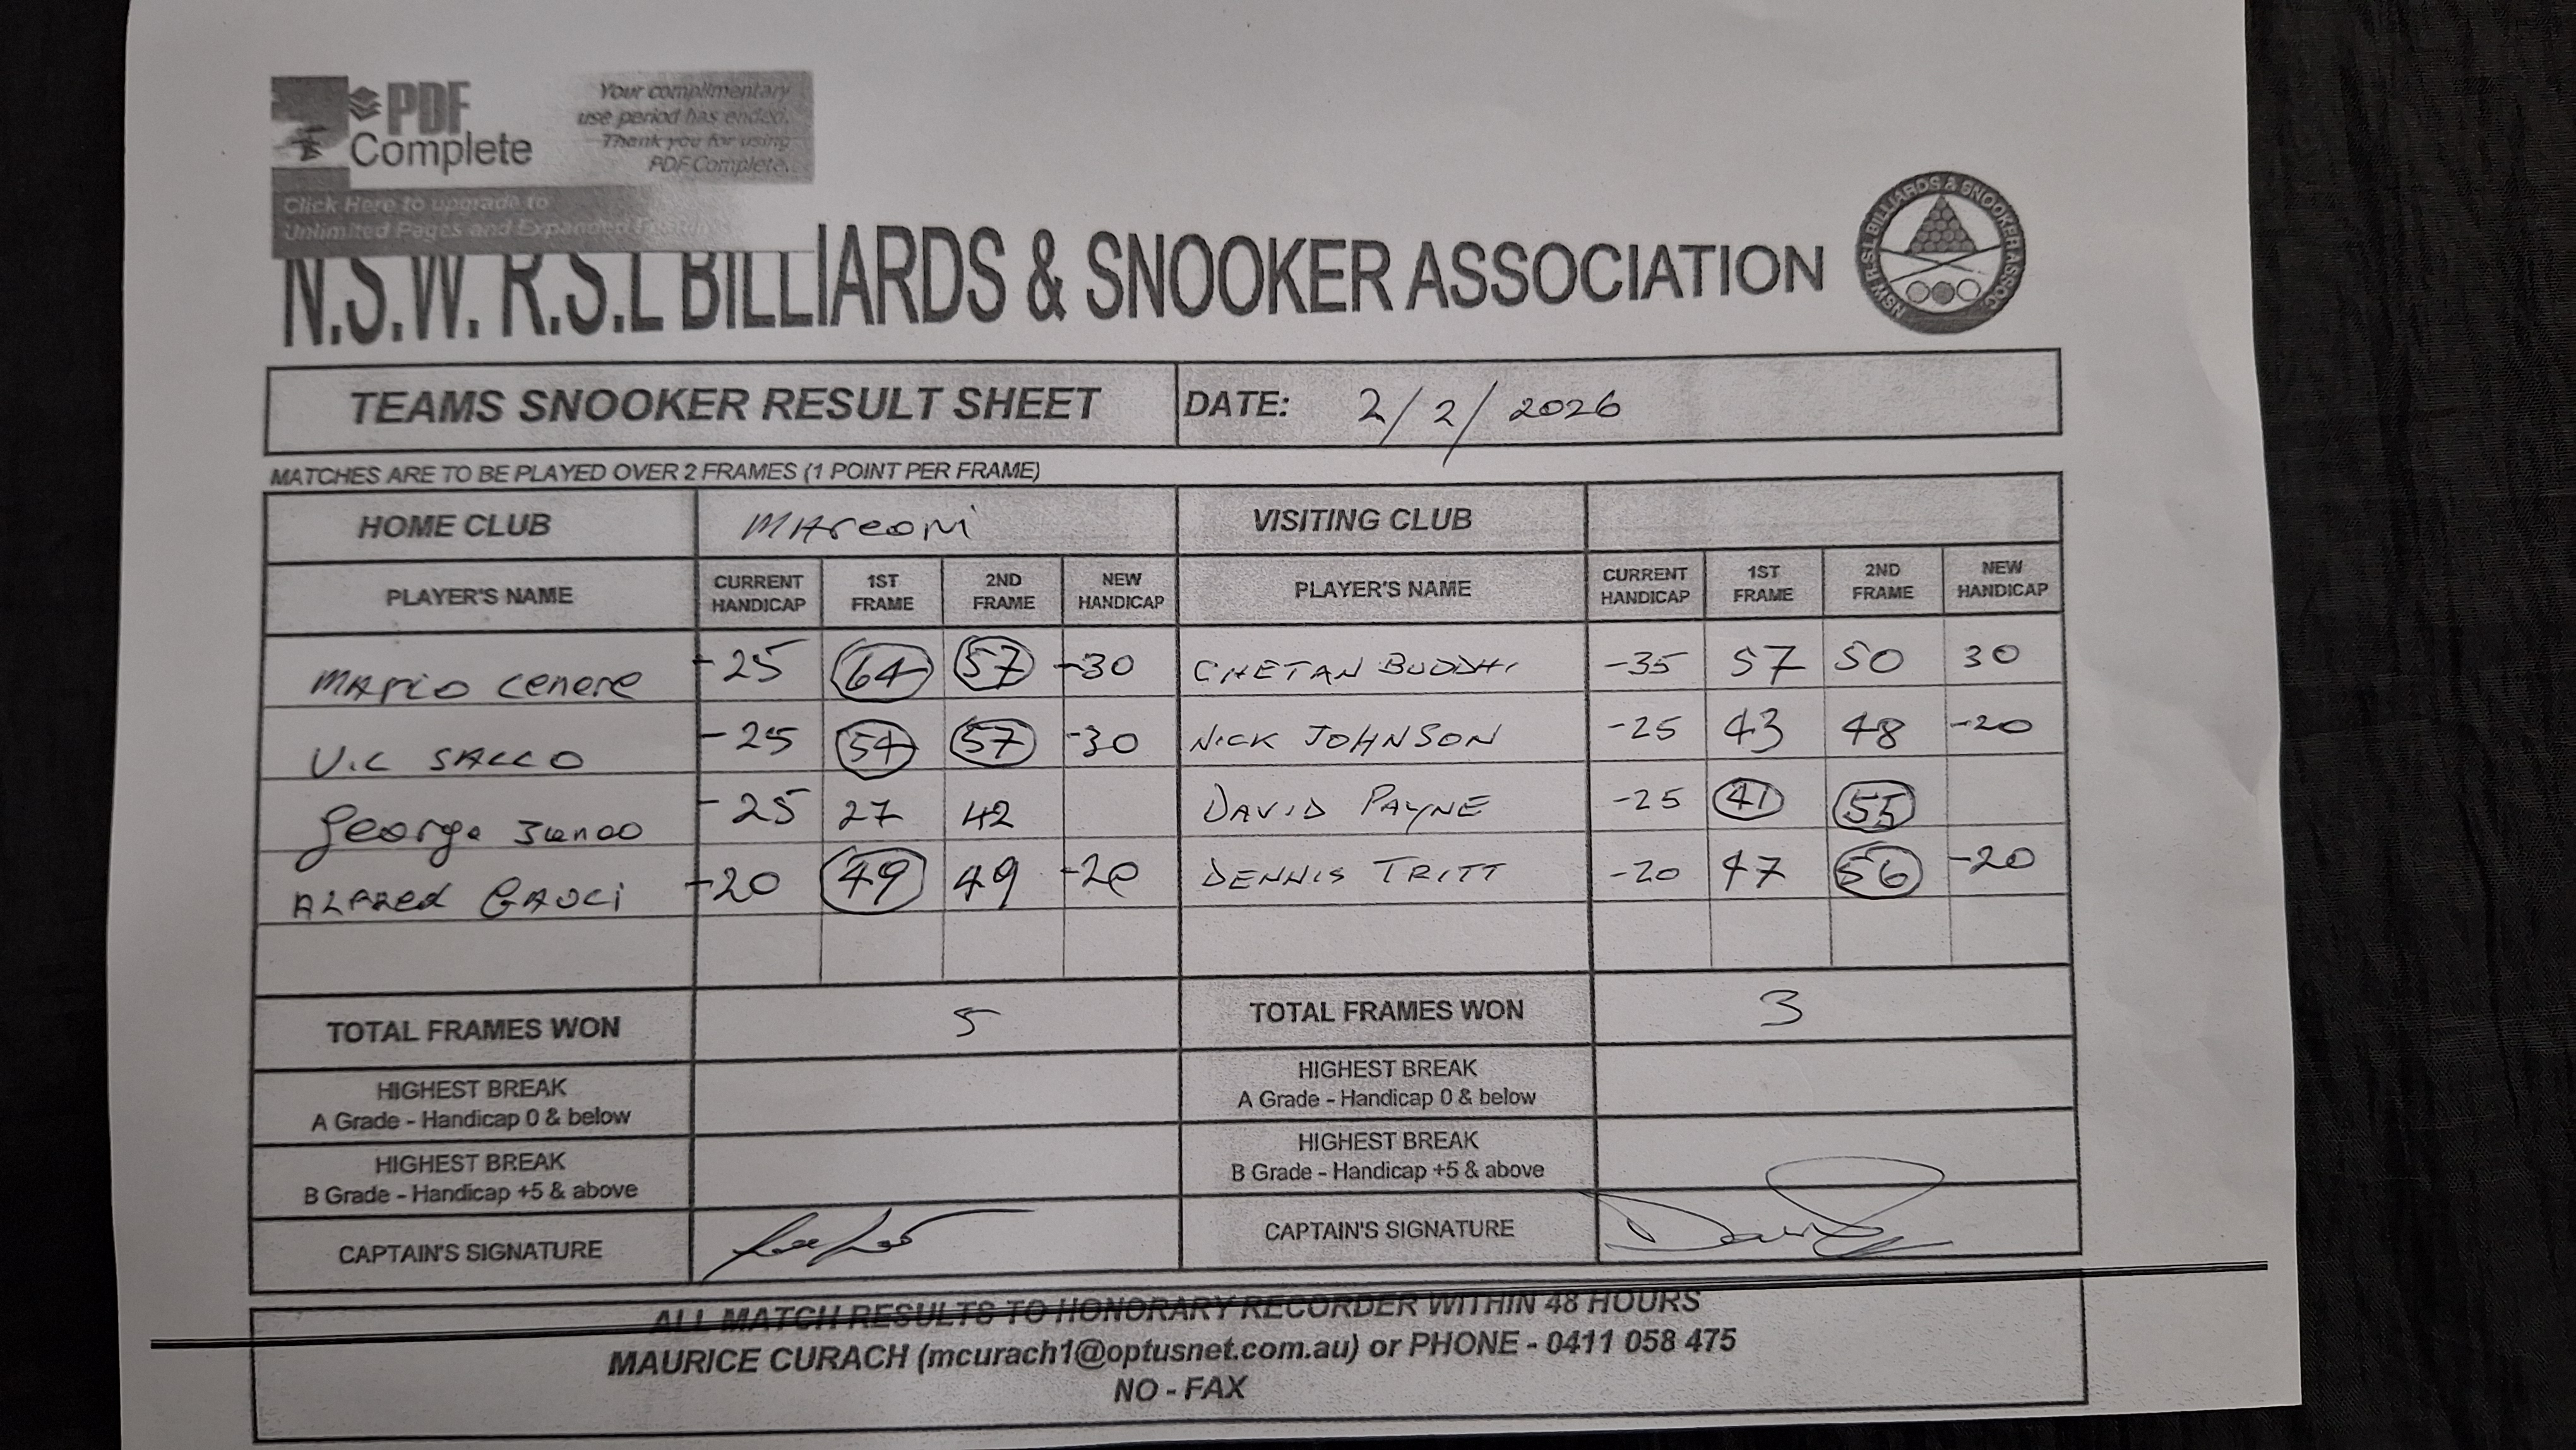 PDF Complete
Your complimentary
use period has ended.
Thank you for using
PDF Complete.
Click Here to upgrade to
Unlimited Pages and Expanded
N.S.W. R.S.L BILLIARDS & SNOOKER ASSOCIATION
NSW R·S·L BILLIARDS & SNOOKER ASSOC.
TEAMS SNOOKER RESULT SHEET DATE: 2/2/2026
MATCHES ARE TO BE PLAYED OVER 2 FRAMES (1 POINT PER FRAME)
HOME CLUB MArconi VISITING CLUB
PLAYER'S NAME CURRENT HANDICAP 1ST FRAME 2ND FRAME NEW HANDICAP PLAYER'S NAME CURRENT HANDICAP 1ST FRAME 2ND FRAME NEW HANDICAP
MARIO CENERE -25 64 57 -30 CHETAN BUDDHI -35 57 50 30
VIC SACCO -25 54 57 -30 NICK JOHNSON -25 43 48 -20
George -25 27 42 DAVID PAYNE -25 41 55
ALFRED GAUCI -20 49 49 -20 DENNIS TRITT -20 47 56 -20
TOTAL FRAMES WON 5 TOTAL FRAMES WON 3
HIGHEST BREAK
A Grade - Handicap 0 & below
HIGHEST BREAK
A Grade - Handicap 0 & below
HIGHEST BREAK
B Grade - Handicap +5 & above
HIGHEST BREAK
B Grade - Handicap +5 & above
CAPTAIN'S SIGNATURE CAPTAIN'S SIGNATURE
ALL MATCH RESULTS TO HONORARY RECORDER WITHIN 48 HOURS
MAURICE CURACH (mcurach1@optusnet.com.au) or PHONE - 0411 058 475
NO - FAX